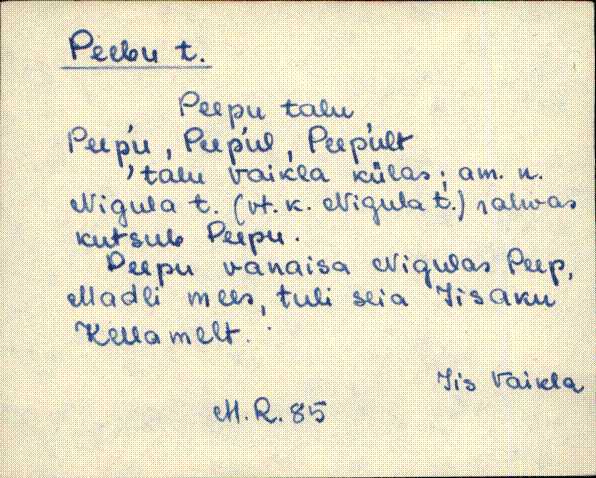 Peebu t.
Peepu talu
Peep'u, Peep'ul, Peep'ult
'talu Vaikla külas; am. n.
Nigula t. (vt. k. Nigula t.) rahvas
kutsub Peepu.
Peepu vanaisa Nigulas Peep,
Madli mees, tuli siia Iisaku
Kellamelt.
Iis Vaikla
M. R. 85